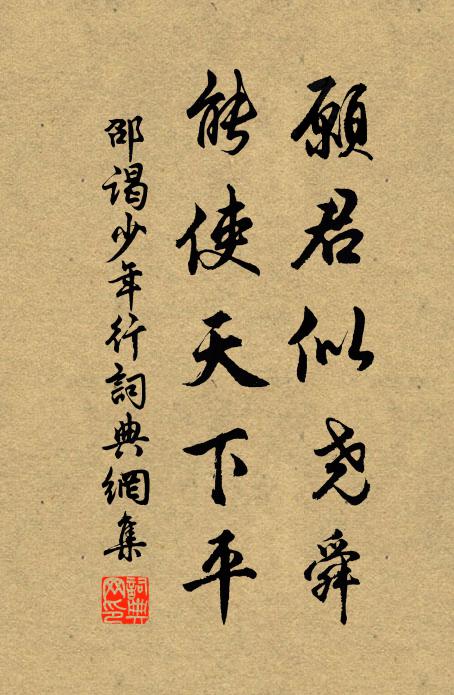 願君似尧舜
能使天下平
邵谒少年行詞典網集
詞典网印